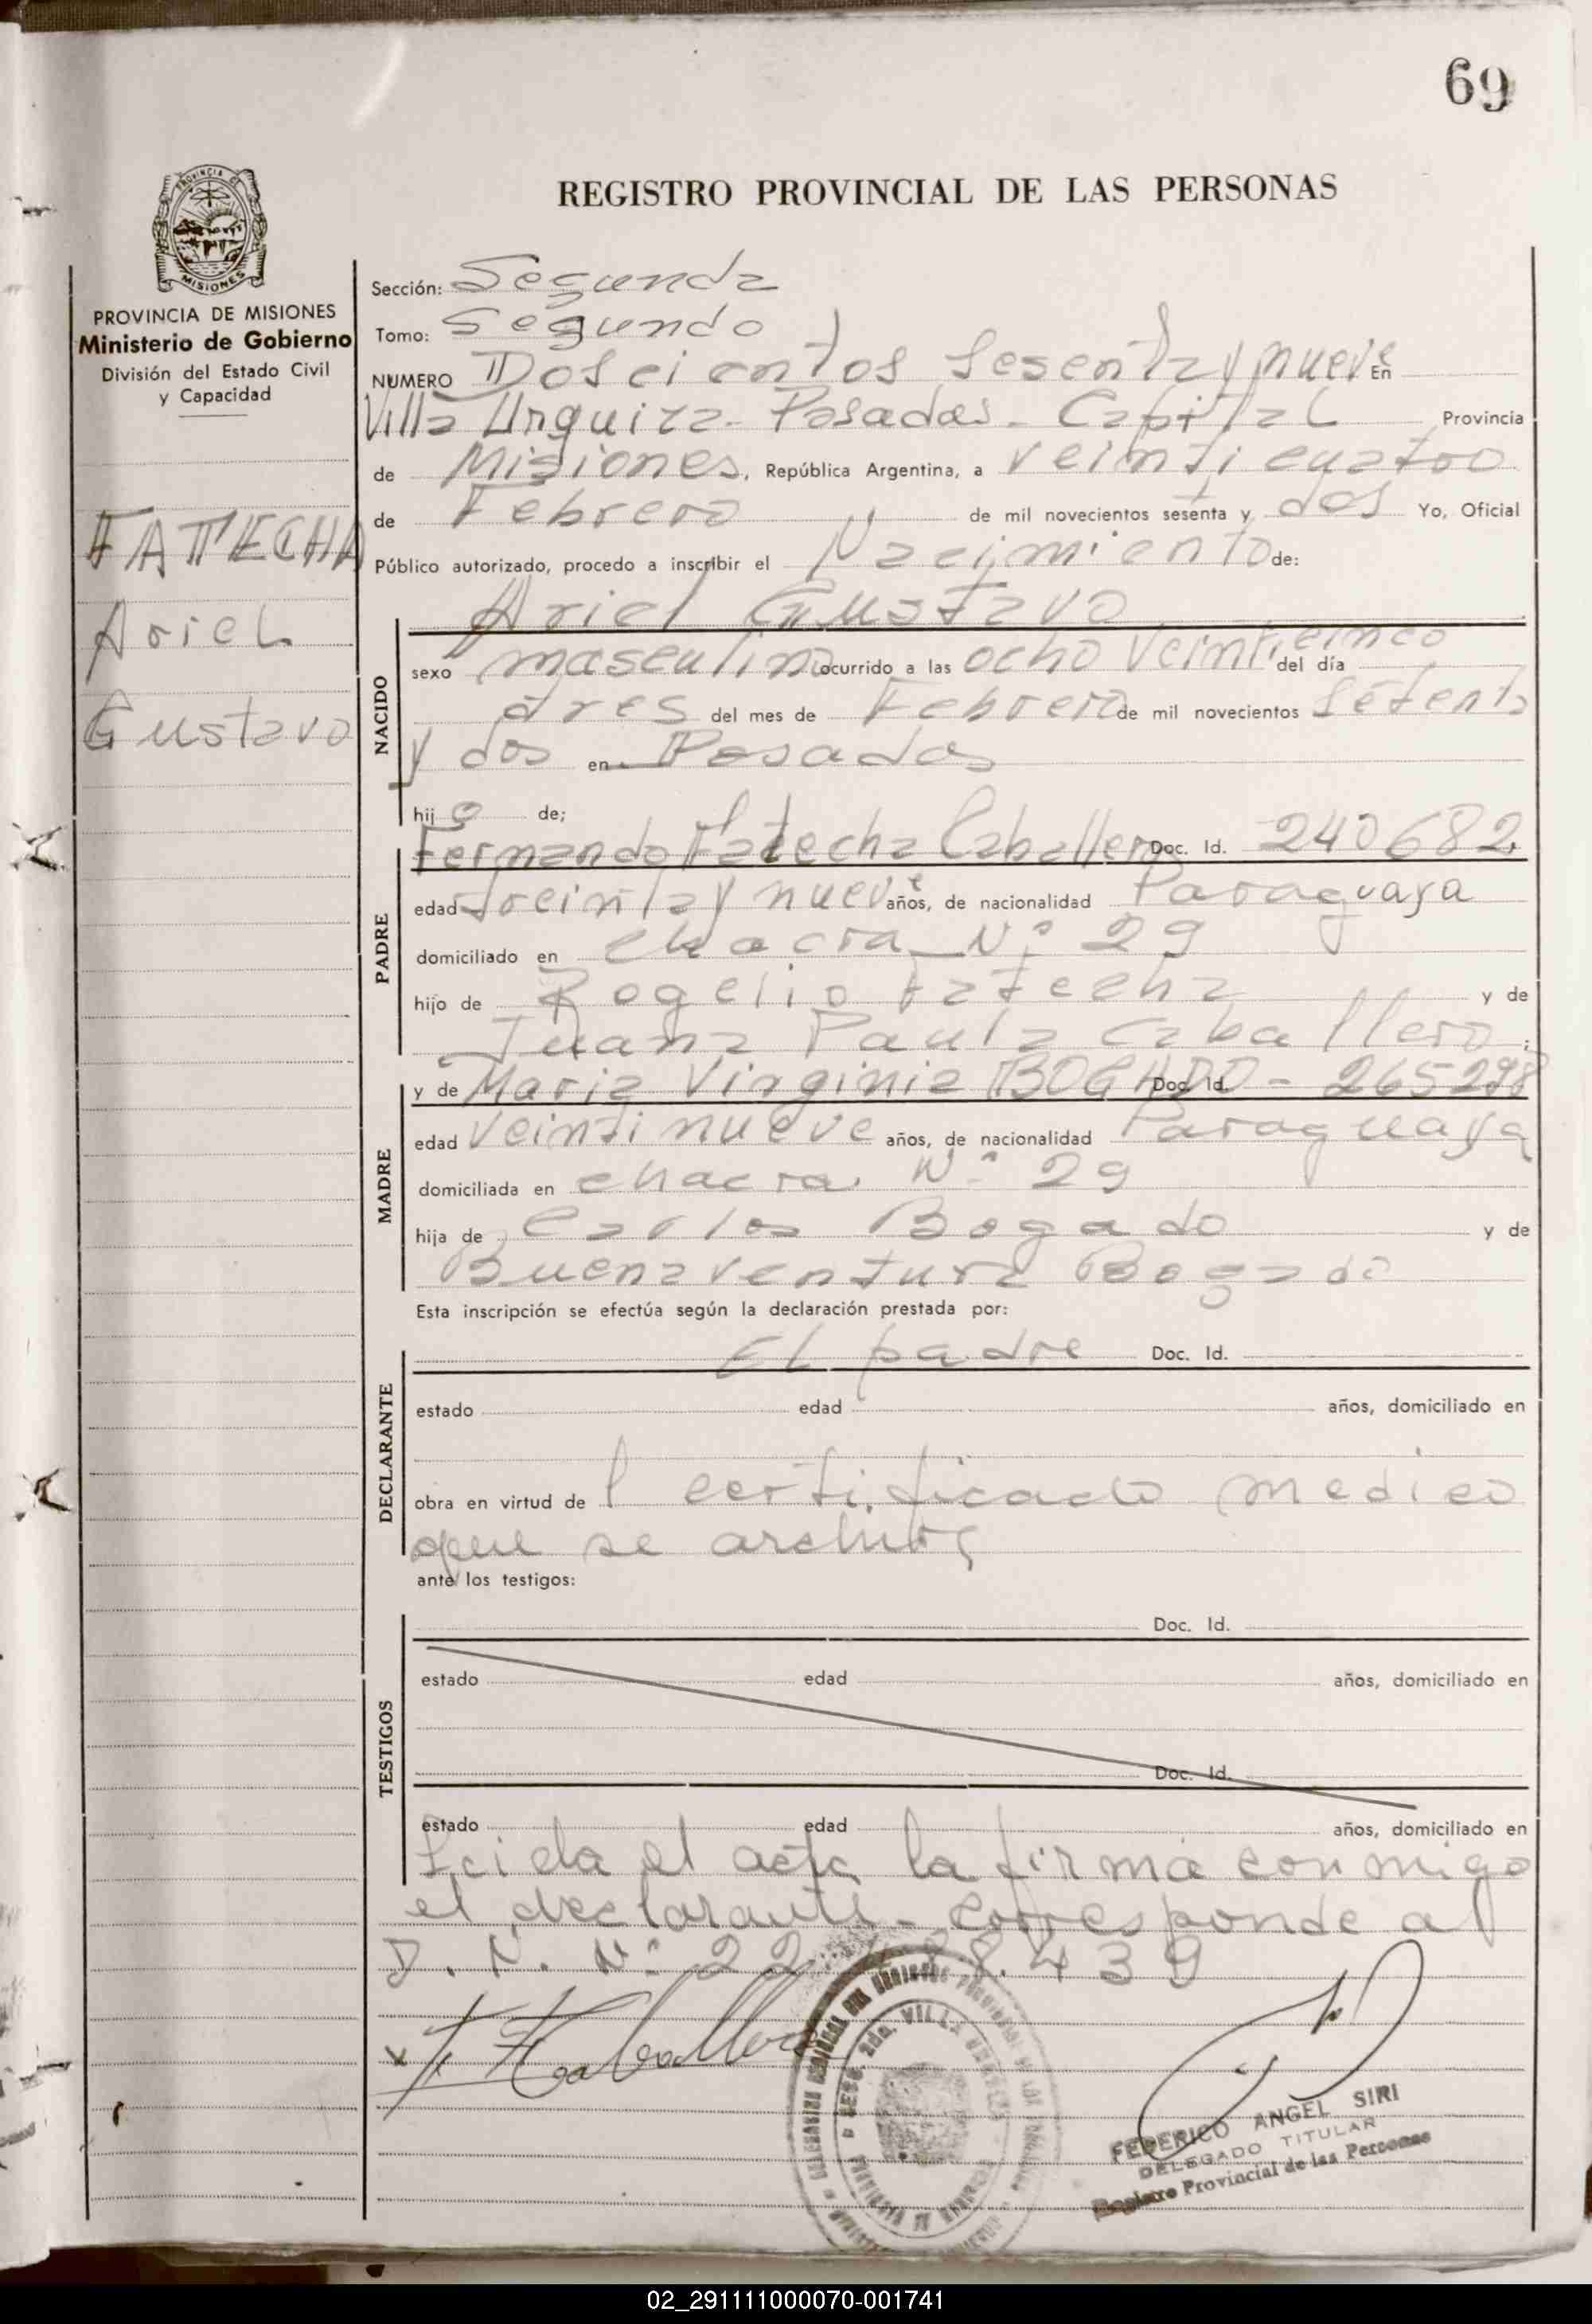 69
REGISTRO PROVINCIAL DE LAS PERSONAS
PROVINCIA DE MISIONES
Ministerio de Gobierno
División del Estado Civil
y Capacidad
FATECHA
Ariel
Gustavo
Sección: Segunda
Tomo: Segundo
NUMERO Doscientos Sesenta y nueve En
Villa Urquiza - Posadas - Capital Provincia
de Misiones, República Argentina, a veinticuatro
de Febrero de mil novecientos sesenta y dos Yo, Oficial
Público autorizado, procedo a inscribir el Nacimiento de:
Ariel Gustavo
NACIDO
sexo masculino ocurrido a las ocho veinticinco del día
tres del mes de Febrero de mil novecientos setenta
y dos en Posadas
hijo de;
PADRE
Fernando Fatecha Caballero Doc. Id. 240682
edad treinta y nueve años, de nacionalidad Paraguaya
domiciliado en chacra Nº 29
hijo de Rogelio Fatecha y de
Juana Paula Caballero;
MADRE
y de Maria Virginia BOGADO Doc. Id. - 265298
edad veintinueve años, de nacionalidad Paraguaya
domiciliada en chacra Nº 29
hija de Carlos Bogado y de
Buenaventura Bogado
Esta inscripción se efectúa según la declaración prestada por:
DECLARANTE
El padre Doc. Id.
estado edad años, domiciliado en
obra en virtud de l certificado medico
que se archiva
ante los testigos:
TESTIGOS
Doc. Id.
estado edad años, domiciliado en
Doc. Id.
estado edad años, domiciliado en
Leida el acta la firma conmigo
el declarante - Corresponde al
D. N. Nº 22. 8.439
F. F Caballero
FEDERICO ANGEL SIRI
DELEGADO TITULAR
Registro Provincial de las Personas
02_291111000070-001741